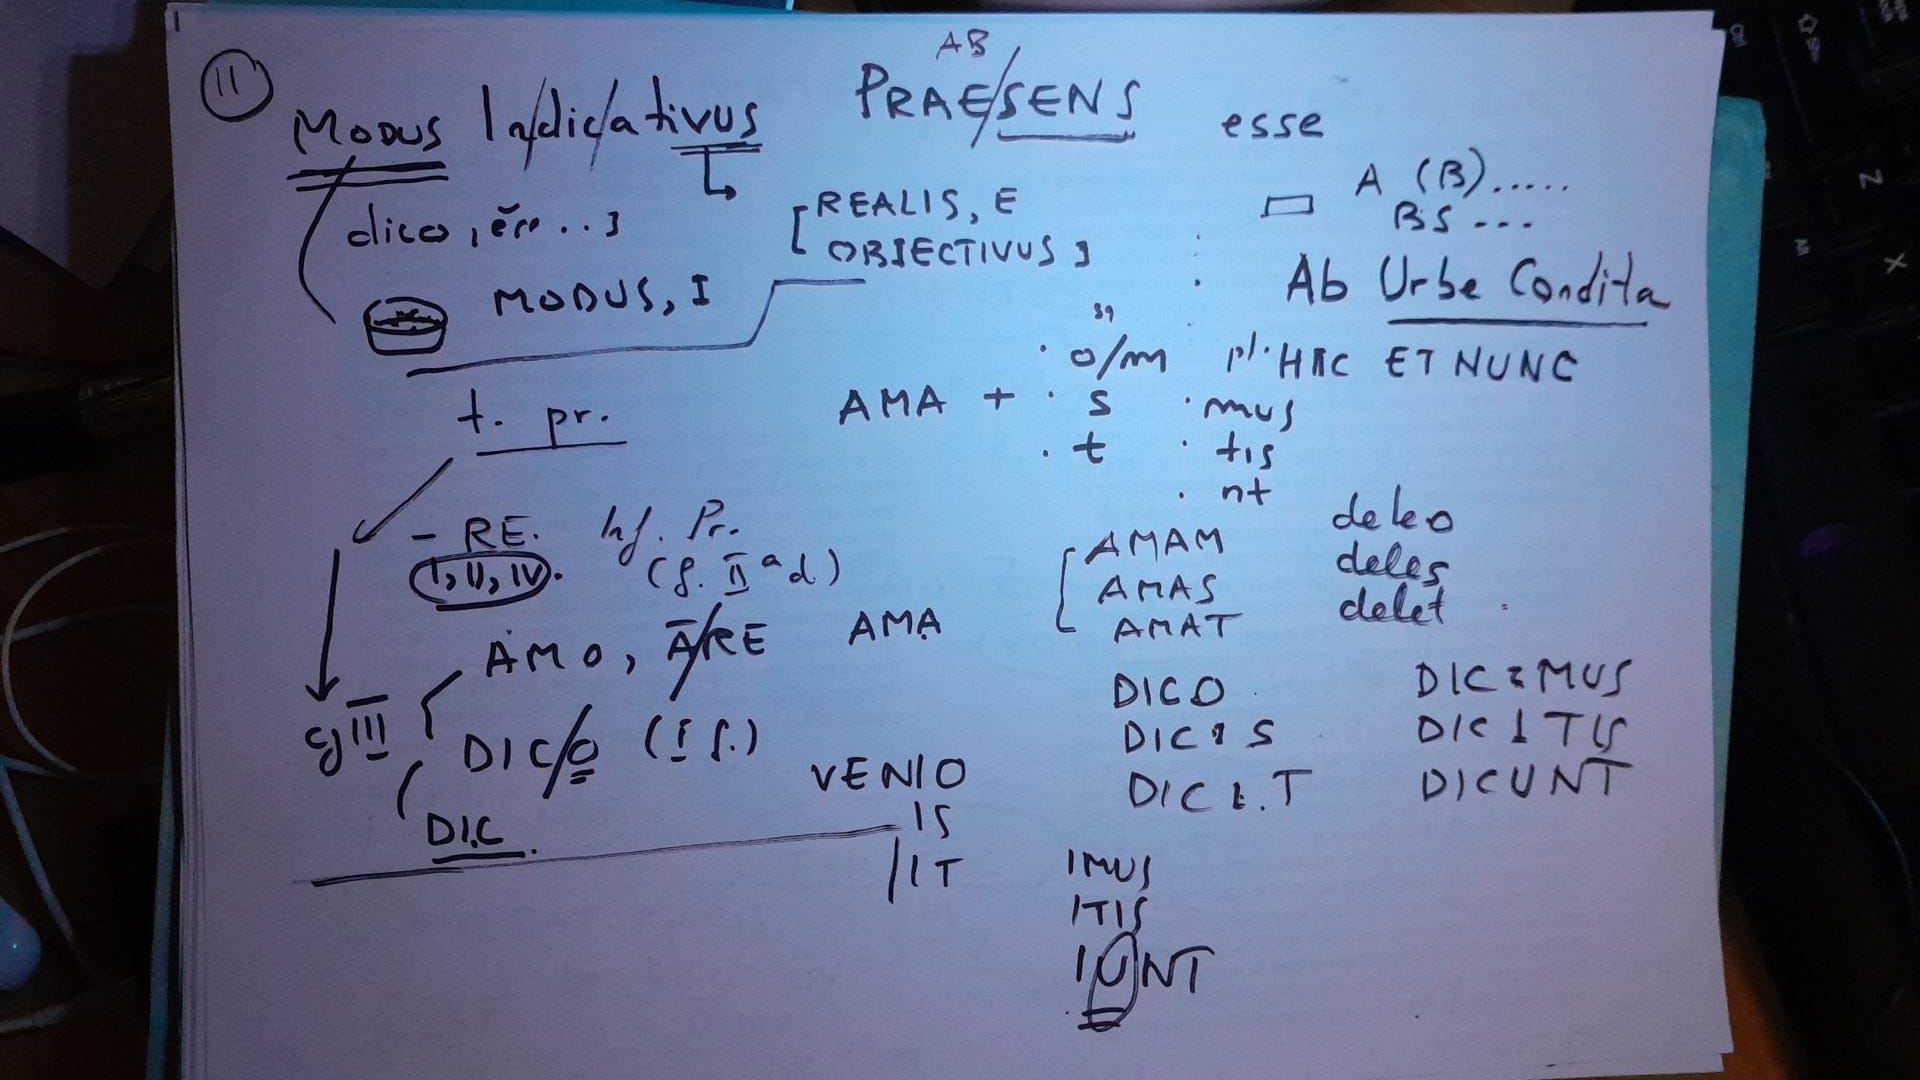 11
AB
MODUS In/dic/ativus PRAE/SENS esse
A (B).....
BS ...
dico, ĕre ..]
[REALIS, E
OBIECTIVUS]
Ab Urbe Condita
MODUS, I
sg
· o/m pl. HIC ET NUNC
AMA + · s · mus
· t · tis
· nt
t. pr.
- RE. Inf. Pr.
(I, II, IV). (f. II ad)
AMAM deleo
AMAS deles
AMAT delet
AMO, ĀRE AMA
cj III
DIC/O (I f.)
DIC.
DICO DICIMUS
DICIS DICITIS
DICIT DICUNT
VENIO
IS
/IT
IMUS
ITIS
IUNT